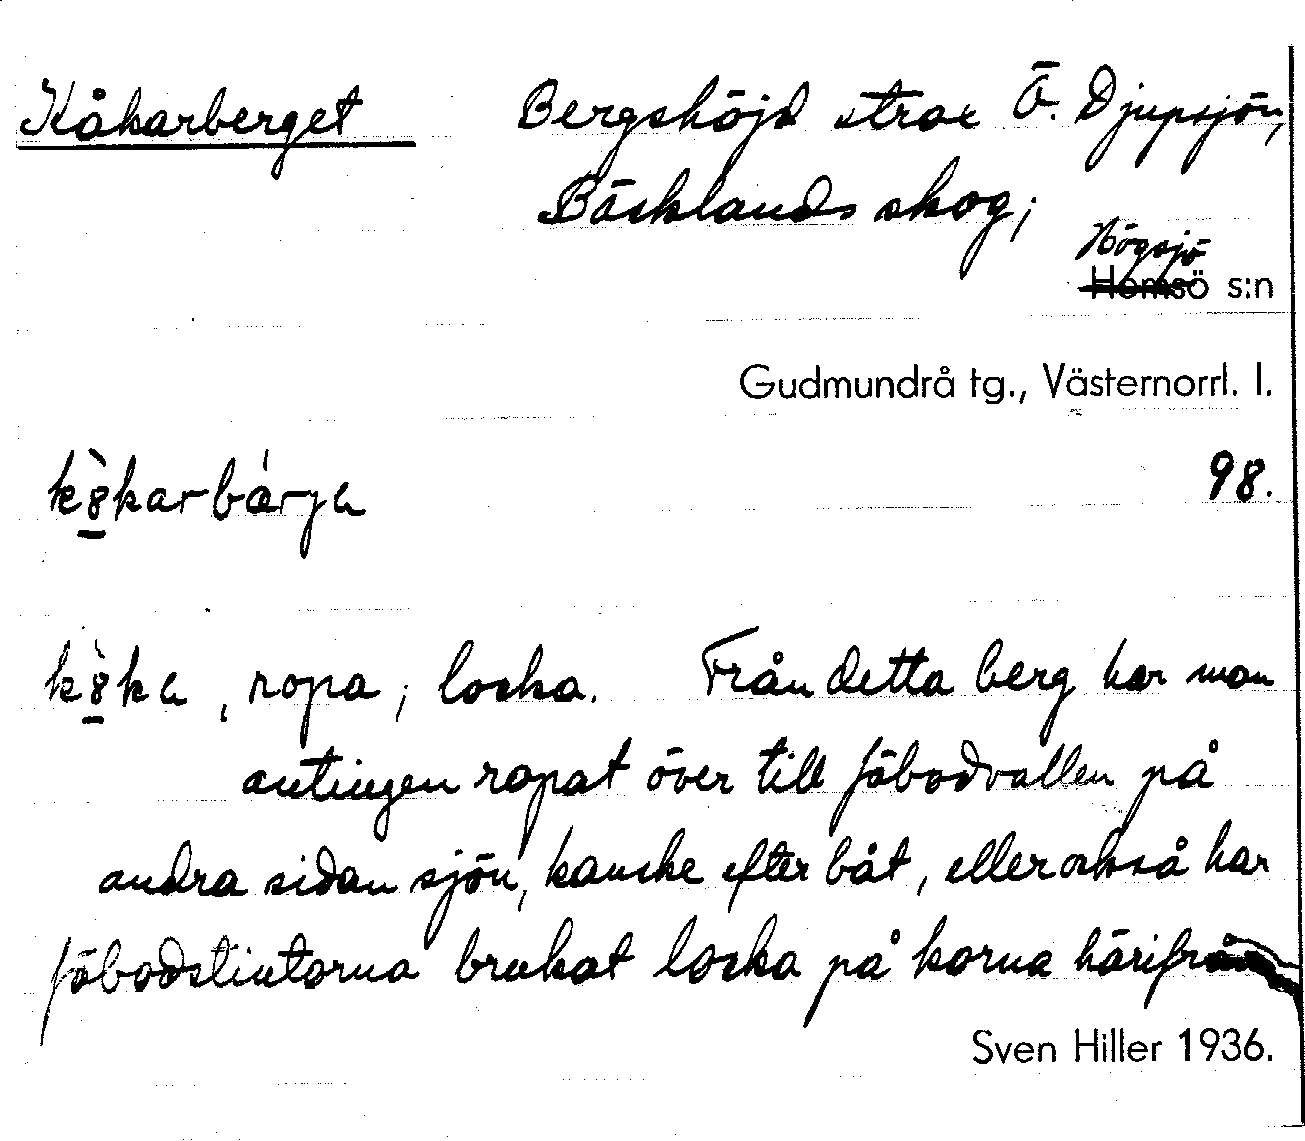 Kåkarberget Bergshöjd strax Ö. Djupsjön,
Bäcklands skog;
Högsjö
Hemsö s:n
Gudmundrå tg., Västernorrl. l.
98.
ropa; locka. Från detta berg har man
antingen ropat över till fäbodvallen på
andra sidan sjön, kanske efter båt, eller också har
fäbodstintorna brukat locka på korna härifrån
Sven Hiller 1936.